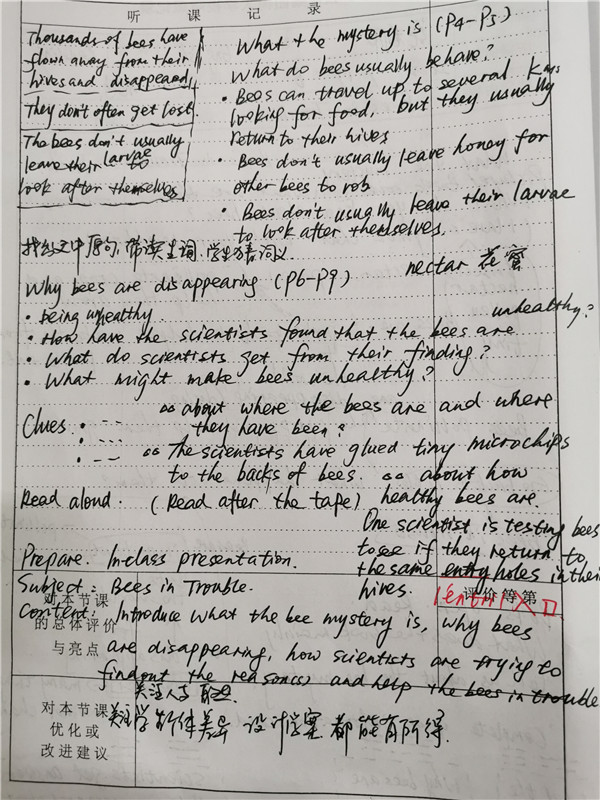 听 课 记 录
Thousands of bees have
flown away from their
hives and disappeared
They don't often get lost.
The bees don't usually
leave their larvae to
look after themselves
What the mystery is (P4-P5)
What do bees usually behave?
• Bees can travel up to several kms
looking for food, but they usually
return to their hives
• Bees don't usually leave honey for
other bees to rob
• Bees don't usually leave their larvae
to look after themselves.
找到文中原句,带读生词,学生猜词义
nectar 花蜜
Why bees are disappearing (P6-P9)
• being unhealthy
• How have the scientists found that the bees are unhealthy?
• What do scientists get from their finding?
• What might make bees unhealthy?
Clues:
about where the bees are and where
they have been?
The scientists have glued tiny microchips
to the backs of bees. about how
healthy bees are.
Read aloud. (Read after the tape)
One scientist is testing bees
to see if they return to
the same entry holes in their
hives.
Prepare. In-class presentation.
Subject: Bees in Trouble.
Content: Introduce what the bee mystery is, why bees
are disappearing, how scientists are trying to
find out the reason(s) and help the bees in trouble
对本节课
的总体评价
与亮点
评价等第
对本节课
优化或
改进建议
关注学生个体差异 设计学案 都能有所得.